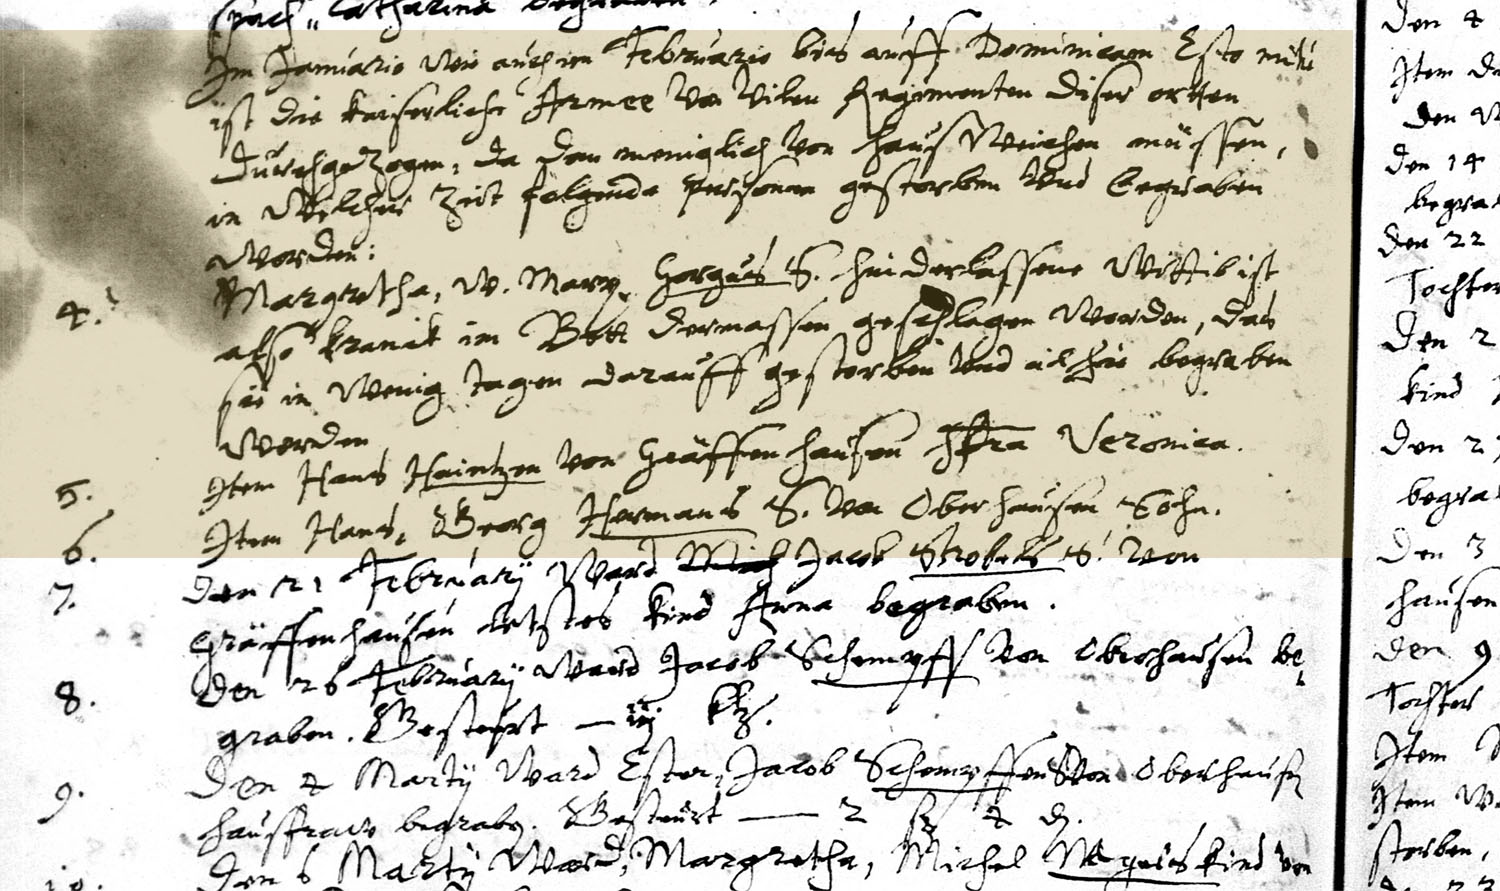 spach, Catharina begraben.
Im Januario Wie auch im Februario bis auff Dominicam Esto mihi
ist die Kaiserliche Armee Von Vilen Regimenten diser orthen
durchgezogen, da dan meniglich von hauß Weichen müssen,
in Welcher Zeit folgende Personen gestorben Und begraben
Worden:
4. Margretha, W. Marx Horgus S. hinderlassene Wittib ist
also kranck im Bett dermassen geschlagen Worden, das
sie in Wenig tagen darauff gestorben Und alhie begraben
Worden
5. Item Hans Haintzen von Gräffenhausen Veronica.
6. Item Hans, Georg Hermans S. Von Oberhausen Sohn.
7. den 21 February Ward Jacob Strobels S. Von
Gräffenhausen letstes Kind Anna begraben.
8. Den 26 February Ward Jacob Schempff Von Oberhausen be-
graben. Besteürt — iij
9. Den 4 Martÿ Ward Ester, Jacob Schempffen Von Oberhausen
hausfraw begraben. Besteürt — 2 4 d.
10. Den 6 Martÿ Ward, Margretha, Michel Kind Von
den 4
Item
den
den 14
begra
den 22
Tochter
Den 2
Kind
Den 2
begra
Den 3
hausen
den 9
Tochter
Item
Item
storben,